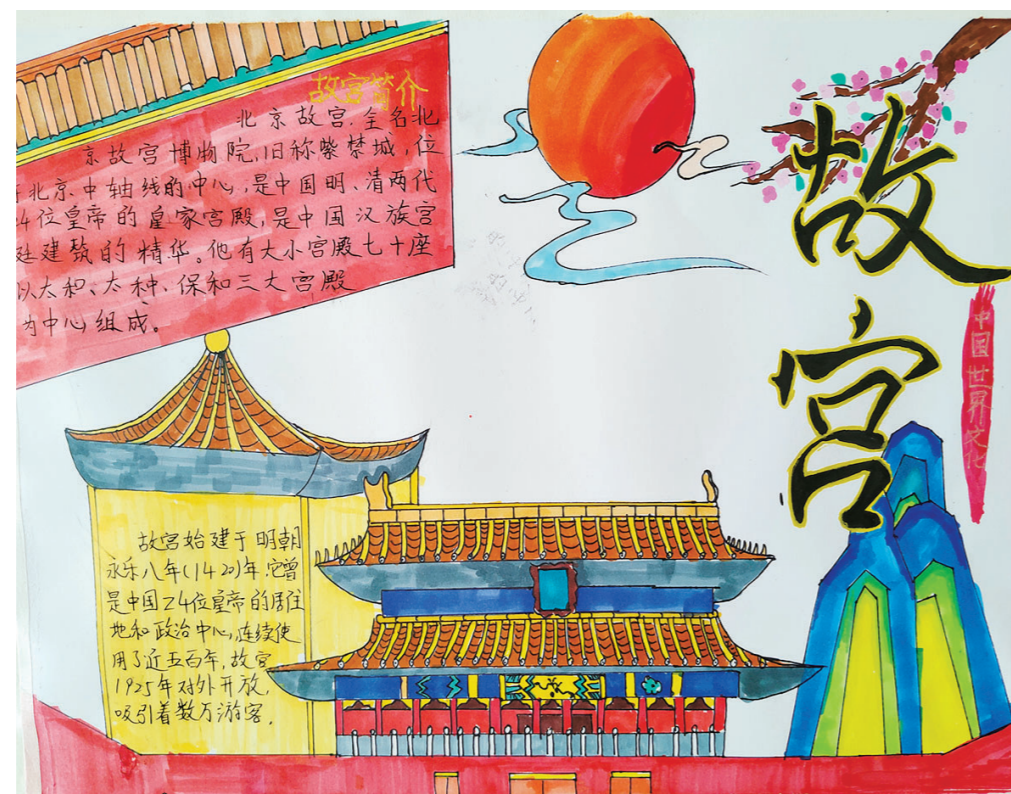 故宫简介
北京故宫.全名北
京故宫博物院,旧称紫禁城,位
于北京中轴线的中心,是中国明、清两代
4位皇帝的皇家宫殿,是中国汉族宫
廷建筑的精华。他有大小宫殿七十座
以太和、太种、保和三大宫殿
为中心组成。
故宫
中国世界文化
故宫始建于明朝
永乐八年(1420)年.它曾
是中国24位皇帝的居住
地和政治中心,连续使
用了近五百年,故宫
1925年对外开放,
吸引着数万游客.